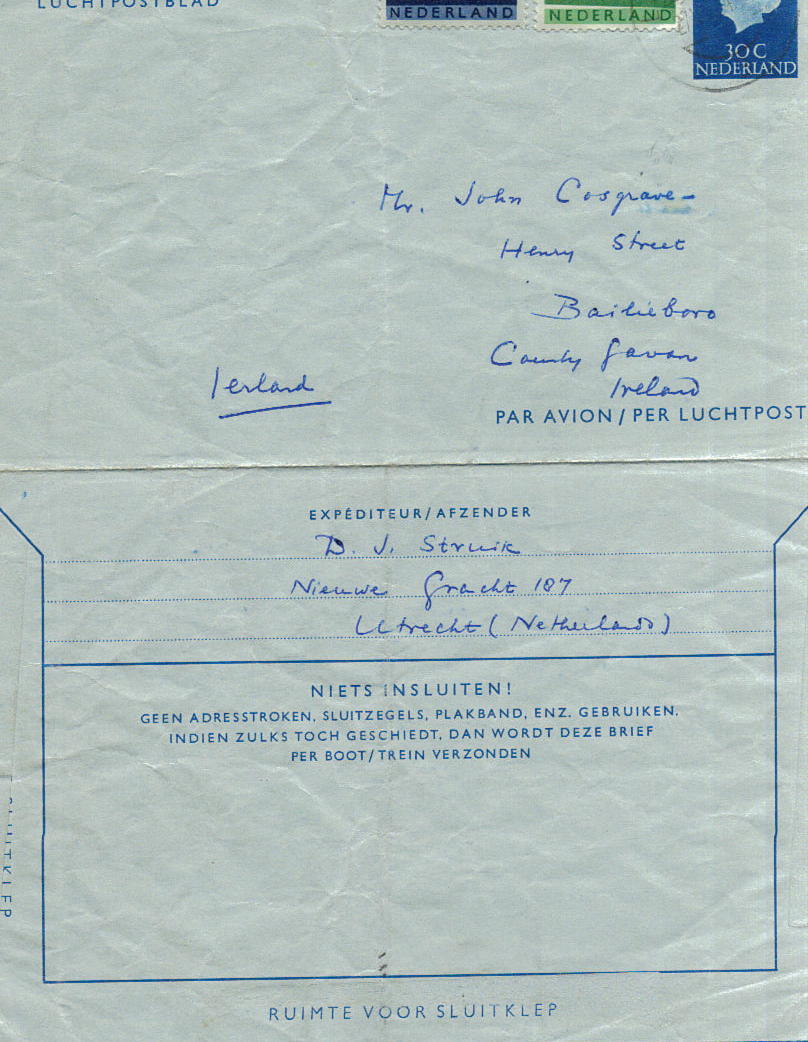 LUCHTPOSTBLAD
NEDERLAND
NEDERLAND
30 C
NEDERLAND
Mr. John Cosgrave
Henry Street
Bailieboro
County Cavan
Ireland
Ierland
PAR AVION / PER LUCHTPOST
EXPÉDITEUR/AFZENDER
D. J. Struik
Nieuwe Gracht 187
Utrecht (Netherlands)
NIETS INSLUITEN!
GEEN ADRESSTROKEN, SLUITZEGELS, PLAKBAND, ENZ. GEBRUIKEN.
INDIEN ZULKS TOCH GESCHIEDT, DAN WORDT DEZE BRIEF
PER BOOT/TREIN VERZONDEN
SLUITKLEP
RUIMTE VOOR SLUITKLEP